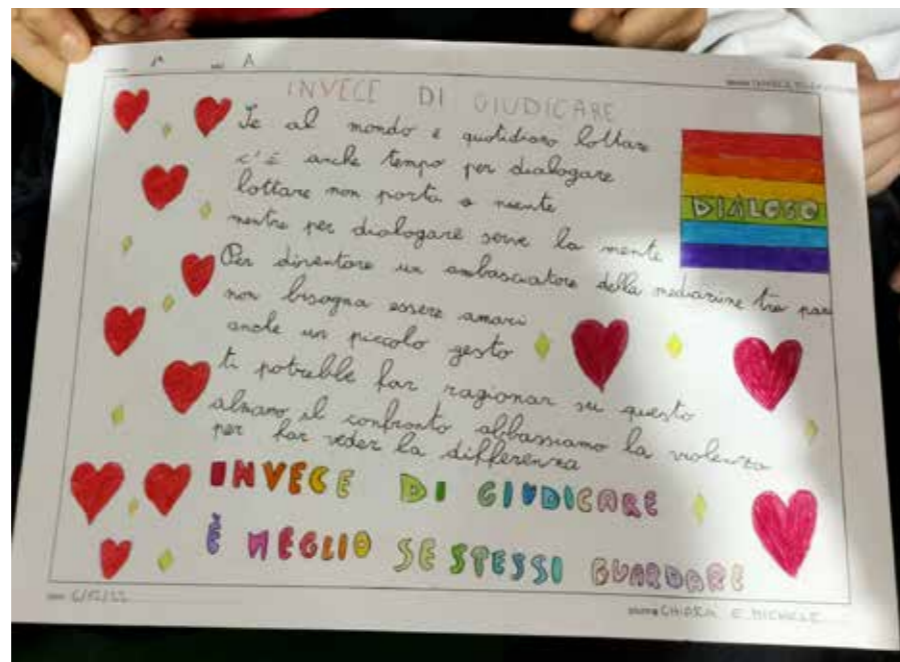 A
INVECE DI GIUDICARE
Se al mondo è quotidiano lottare
c'è anche tempo per dialogare
lottare non porta a niente
mentre per dialogare serve la mente
DIALOGO
Per diventare un ambasciatore della mediazione tra pari
non bisogna essere amari
anche un piccolo gesto
ti potrebbe far ragionar su questo
alziamo il confronto abbassiamo la violenza
per far veder la differenza
INVECE DI GIUDICARE
È MEGLIO SE STESSI GUARDARE
6/12/22
CHIARA E MICHELE